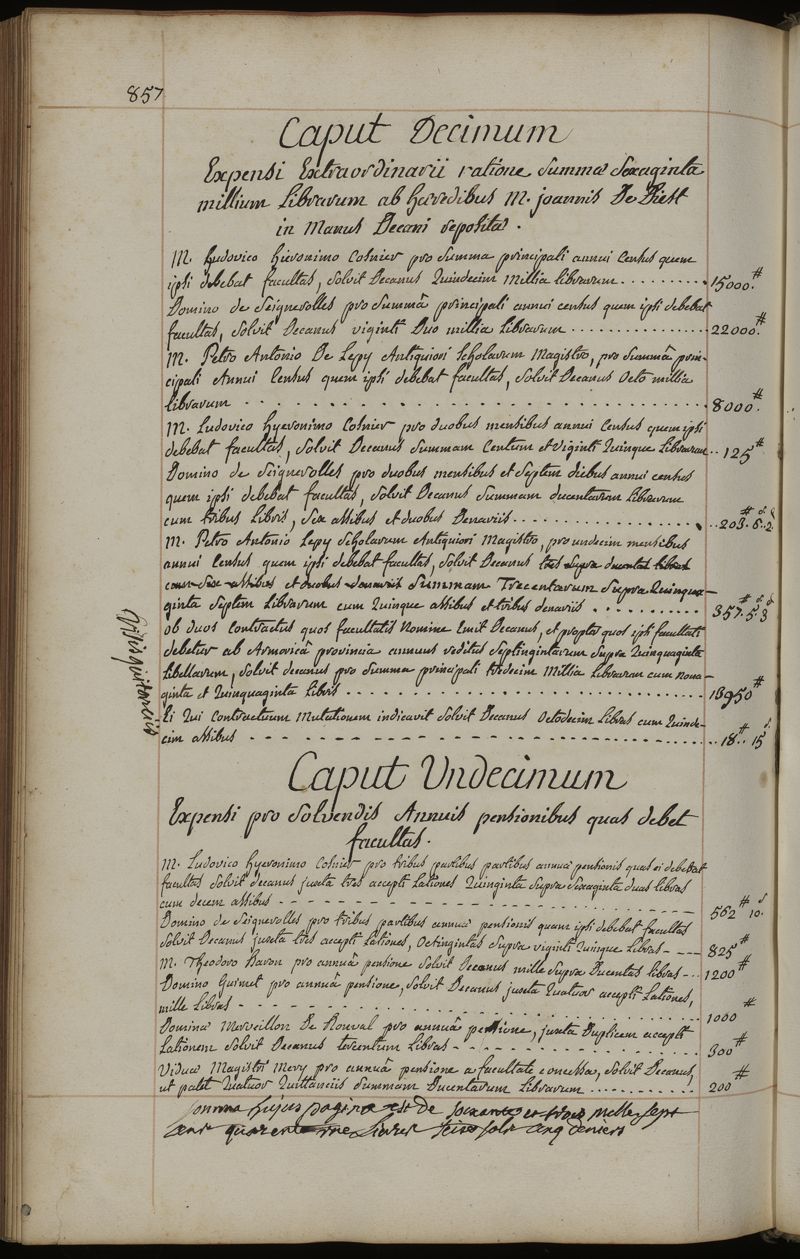 857
Caput Decimum
Expensi Extraordinarii ratione summæ sexaginta
millium Librarum ab hæredibus M. joannis De Diest
in Manus Decani repositæ.
M. Ludovico hieronimo Cosnier pro summa principali annui Census quem
ipsi debebat facultas, solvit Decanus Quindecim Millia librarum......... 15000.#
Domino de Seignerolles pro summâ principali annui census quem ipsi debebat
facultas, solvit Decanus viginti Duo millia Librarum............... 22000.#
M. Petro Antonio De Lepy Antiquiori scholarum Magistro, pro summâ prin-
cipali Annui Census quem ipsi debebat facultas, solvit Decanus Octo millia
librarum.................... 8000.#
M. Ludovico hyeronimo Cosnier pro duobus mensibus annui Census quem ipsi
debebat facultas, solvit Decanus summam Centum et Viginti Quinque Librarum.. 125#
Domino de Seignerolles pro duobus mensibus et septem diebus annui census
quem ipsi debebat facultas, solvit Decanus summam ducentarum Librarum
cum tribus Libris, sex assibus et duobus Denariis............... 203.# 6.s 2.d
M. Petro Antonio Lepy Scholarum Antiquiori Magistro, pro undecim mensibus
annui Census quem ipsi debebat facultas, solvit Decanus tres supra ducentas libras
cum sex assibus et duobus denariis summam Trecentarum supra Quinqua-
ginta septem Librarum cum Quinque assibus et tribus denariis.......... 357.# 5s 3d
Ob duos Contractus quos facultatis Nomine Emit Decanus, et propter quos ipsi facultati
debetur ab Armoricâ provincia annuus reditus septingintarum supra Quinquaginta
Libellarum, solvit decanus pro summa principali tredecim Millia Librarum cum nona-
ginta et Quinquaginta Libris.................... 13950#
Ei Qui Contractuum Mutationem indicavit solvit Decanus Octodecim Libras cum Quinde-
cim assibus.................... 18.# 15s
Caput Undecimum
Expensi pro solvendis Annuis pensionibus quas debet
facultas.
M. Ludovico hyeronimo Cosnier pro tribus partibus partibus annuæ pensionis quas ei debebat
facultas solvit decanus juxta tres accepti Lationes Quinginta supra sexaginta duas libras
cum decem assibus.................... 562# 10.s
Domino de Seignerolles pro tribus partibus annuæ pensionis quam ipsi debebat facultas
solvit Decanus juxta tres accepti Lationes, Octingintas supra viginti Quinque Libras---- 825#
M. Theodoro Baron pro annuâ pensione solvit Decanus mille supra Ducentas libras-.. 1200#
Domino Guimet pro annuâ pensione, solvit Decanus juxta Quatuor accepti Lationes,
mille Libras.................... 1000#
Dominæ Merveillon De Nouval pro annuâ pensione, juxta Duplicem accepti
Lationem solvit Decanus tercentum Libras.................... 300#
Viduæ Magistri Mery pro annuâ pensione a facultate concessa, solvit Decanus,
ut patet Quatuor Quittanciis summam Ducentarum Librarum........... 200#
somma hujus pagina est de soixante et trois mille sept
cent quarente une Livres seize sols cinq deniers